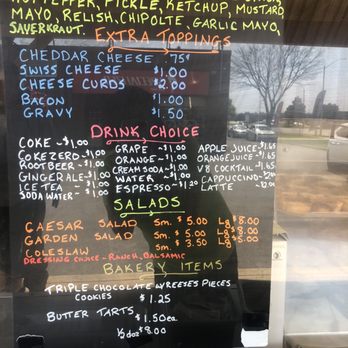 HOT PEPPER, PICKLE, KETCHUP, MUSTARD,
MAYO, RELISH, CHIPOLTE, GARLIC MAYO,
SAUERKRAUT.
EXTRA TOPPINGS
CHEDDAR CHEESE .75¢
SWISS CHEESE $1.00
CHEESE CURDS $2.00
BACON $1.00
GRAVY $1.50
DRINK CHOICE
COKE ~$1.00 GRAPE ~$1.00 APPLE JUICE-$1.65
COKEZERO-$1.00 ORANGE~$1.00 ORANGE JUICE-$1.65
ROOTBEER~$1.00 CREAM SODA~$1.00 V8 COCKTAIL-$1.65
GINGERALE~$1.00 WATER ~ $1.00 CAPPUCCINO-
ICE TEA ~ $1.00 ESPRESSO~$1.20 LATTE
SODA WATER~$1.00
SALADS
CAESAR SALAD Sm. $5.00 Lg $8.00
GARDEN SALAD Sm. $5.00 Lg $8.00
COLESLAW Sm. $3.50 Lg $5.00
DRESSING CHOICE-RANCH, BALSAMIC
BAKERY ITEMS
TRIPLE CHOCOLATE W/REESES PIECES
COOKIES $1.25
BUTTER TARTS $1.50ea
1/2 doz $8.00